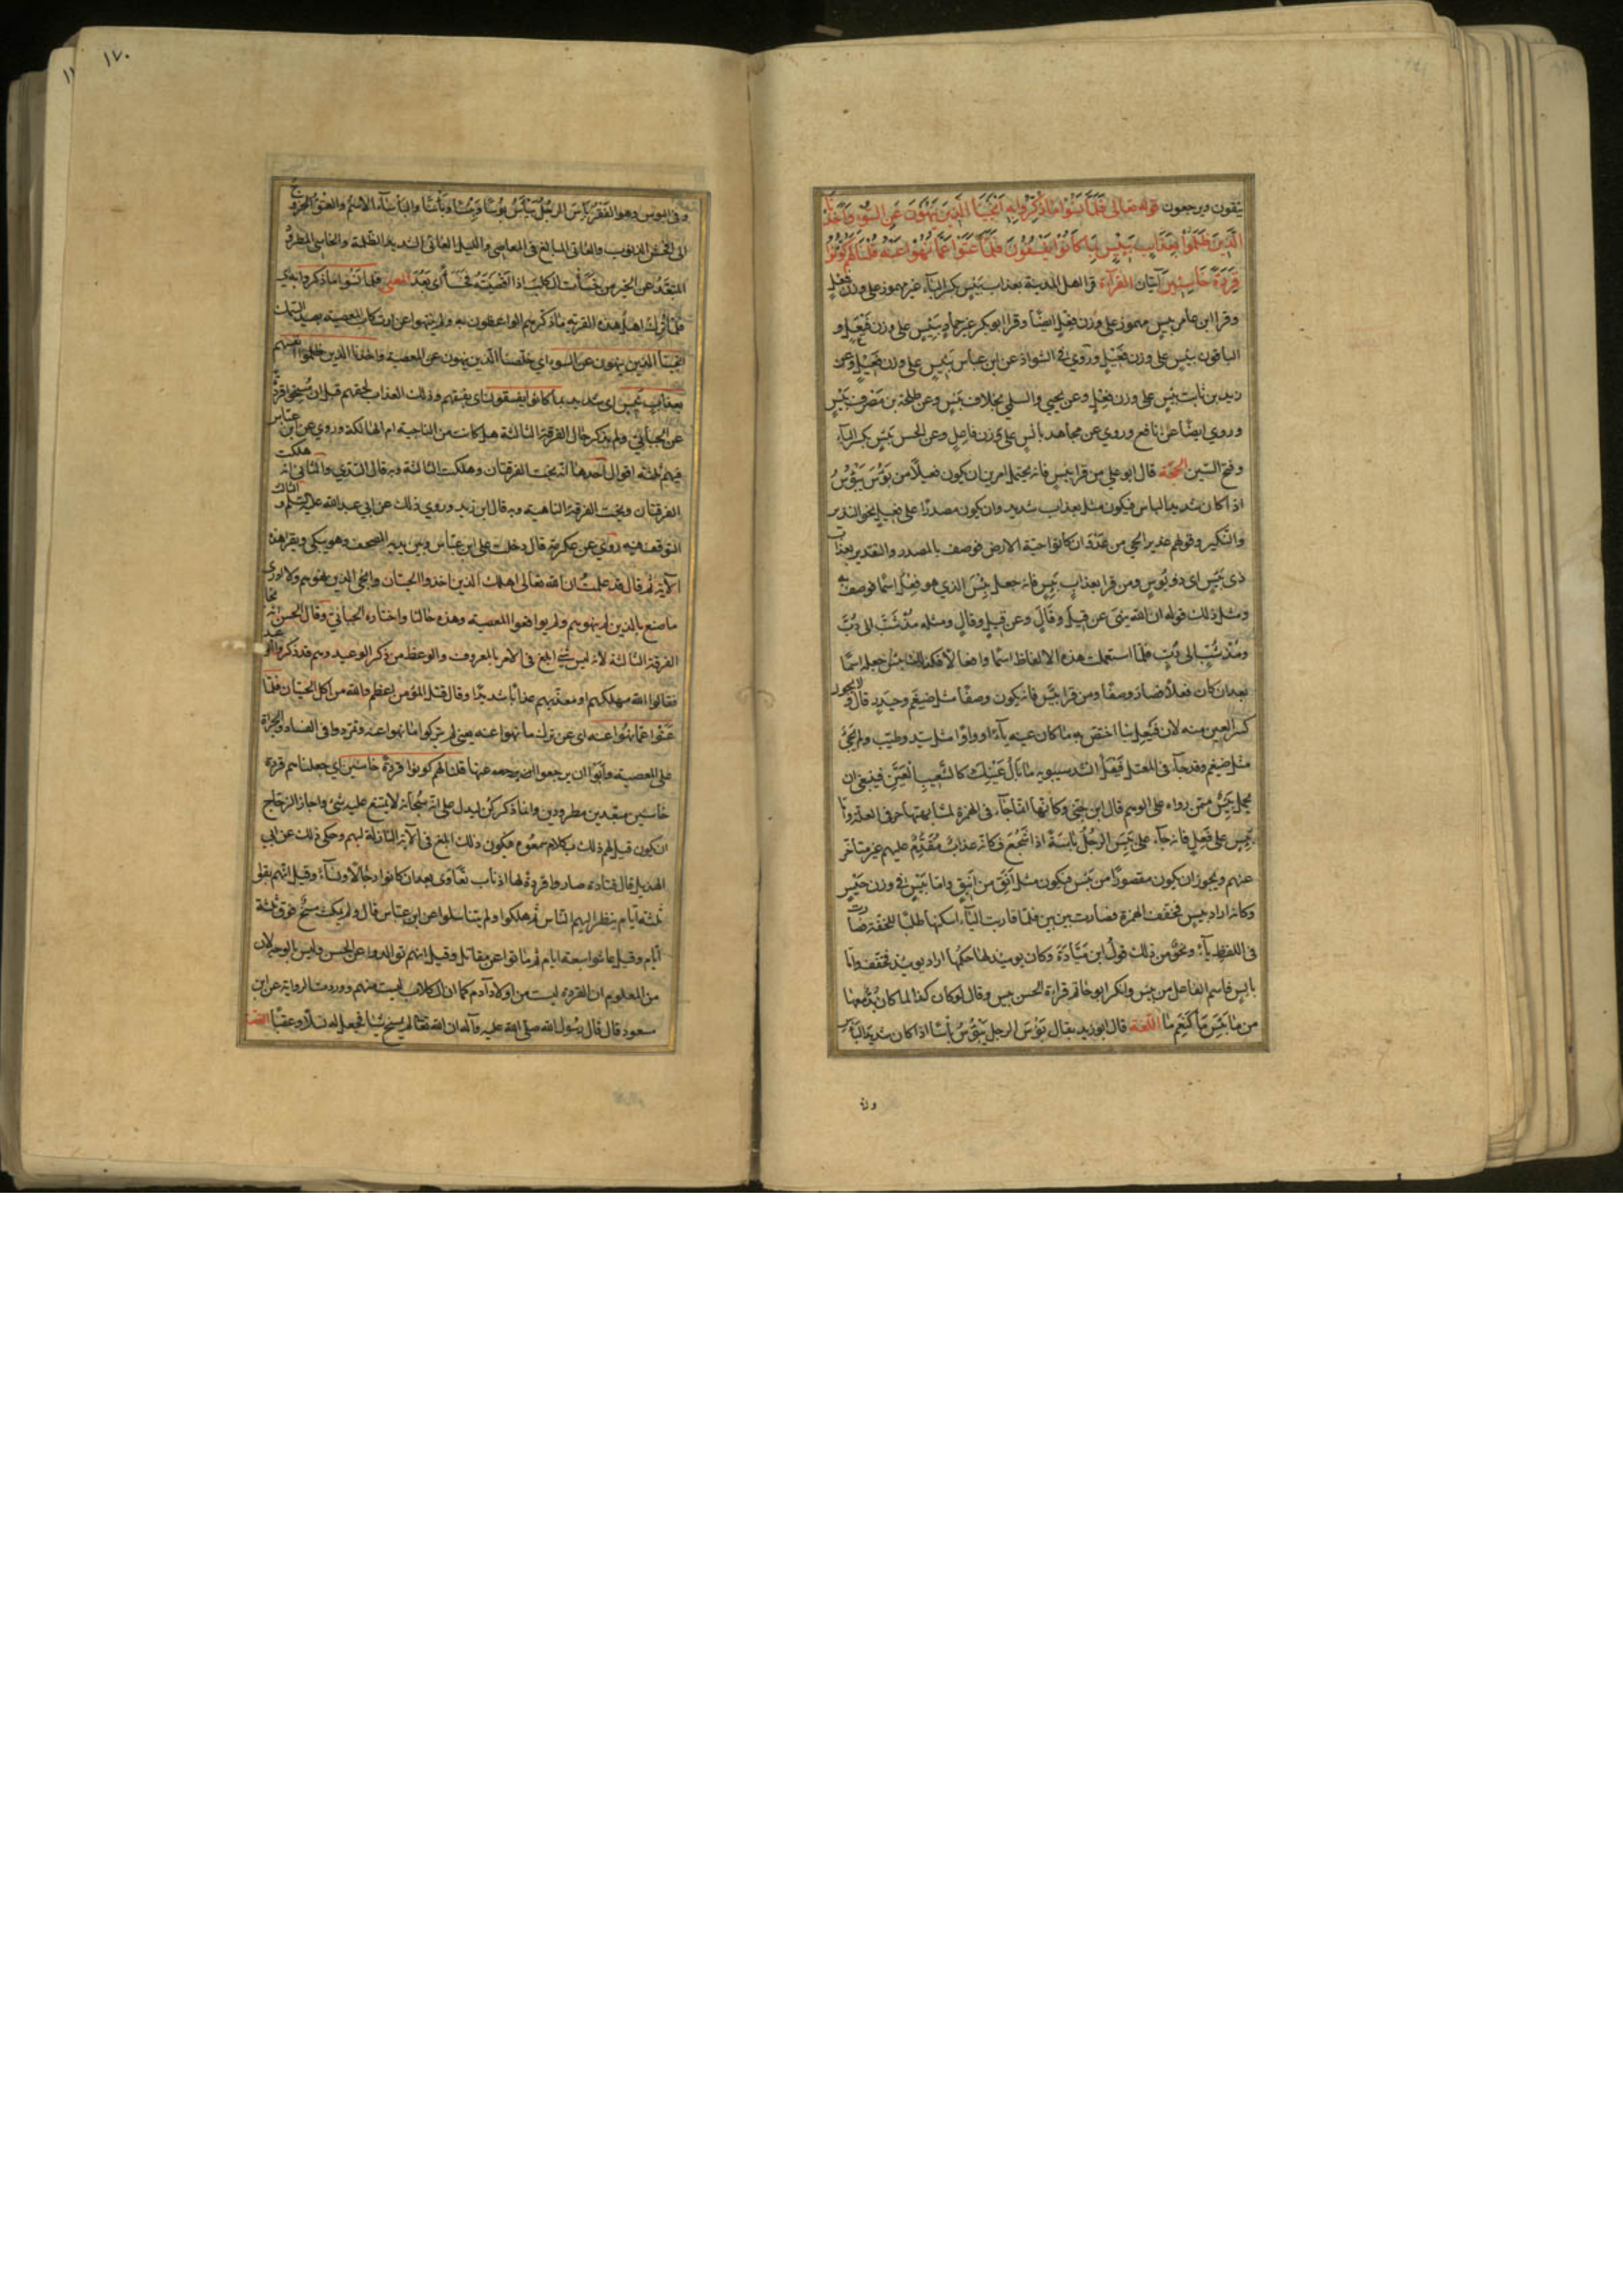 يتقون ويرجعون قوله تعالى فلما نسوا ما ذكروا به انجينا الذين ينهون عن السوء واخذنا
الذين ظلموا بعذاب بئيس بما كانوا يفسقون فلما عتوا عما نهوا عنه قلنا لهم كونوا
قردة خاسئين آيتان القرآءة قرا اهل المدينة بعذاب بيس بكسر الباء غير مهموز على وزن فعل
وقرا ابن عامر بئس مهموز على وزن فعل ايضا وقرا ابو بكر غير حماد بيئس على وزن فيعل و
الباقون بئيس على وزن فعيل وروي في الشواذ عن ابن عباس على وزن فيعل وعن
زيد بن ثابت بئس على وزن فعل وعن يحيى والسلمي بخلاف بئس وعن طلحة بن مصرف بيس
وروي ايضا عن نافع وروي عن مجاهد بائس على وزن فاعل وعن الحسن بئس بكسر الباء
وفتح السين الحجة قال ابو علي من قرا بئيس فانه يحتمل امرين ان يكون فعيلا من بؤس يبؤس
اذا كان شديد الباس فيكون مثل بعذاب شديد وان يكون مصدرا على فعيل نحو النذير
والنكير وقولهم عذير الحي من عدوان كانوا حية الارض فوصف بالمصدر والتقدير بعذاب
ذي بئيس اي ذو بؤس ومن قرا بعذاب بئس فانه جعل بئس الذي هو فعل اسما فوصف به
ومثل ذلك قوله ان الله ينهى عن قيل وقال وعن قيل وقال ومثله مذ شب الى دب
ومذ شب الى دب فلما استعملت هذه الالفاظ اسما وافعالا فكذلك بئس جعله اسما
بعد ان كان فعلا فصار وصفا ومن قرا بيئس فانه يكون وصفا مثل ضيغم وحيدر قال ولا يجوز
كسر العين منه لان فيعل بناء اختص به ما كان عينه ياء او واوا مثل سيد وطيب ولم يجئ
مثل ضيغم وقد جاء في المعتل فيعل انشد سيبويه ما بال عينك كالشعيب العين فينبغي ان
يحمل بيئس ممن رواه على الوهم قال ابن جني وكانها انما جاء في الهمزة لمشابهتها حرفي العلة واما
بئس على فعل فانه جاء على بئس الرجل باسة اذا شجع فكانه عذاب مقدم عليهم غير متاخر
عنهم ويجوز ان يكون مقصورا من بئيس فيكون مثل انق من انيق واما بيس في وزن جيس
وكانه اراد بيئس فخفف الهمزة فصارت بين بين فلما قاربت الياء اسكنها طلبا للخفة فصارت
في اللفظ ياء ونحو من ذلك قول ابن ميادة وكان يومئذ لها حكمها اراد يومئذ فخفف واما
بائس فاسم الفاعل من بئس وانكر ابو حاتم قراءة الحسن بئس وقال لو كان كذا لما كان بد معها
من ما بئس ما كنعم ما اللغة قال ابو زيد يقال بؤس الرجل يبؤس باسا اذا كان شديد الباس
وفي
١٧٠
وفي البؤس وهو الفقر بئس الرجل يباس بؤسا وباسا والباساء الاسم والعتو الخروج
الى افحش الذنوب والعاتي المبالغ في المعاصي والليل العاتي الشديد الظلمة والخاسئ المطرود
المبعد عن الخير من خسات الكلب اذا اقصيته فخسا اى بعد المعنى فلما نسوا ما ذكروا به اي
فلما ترك اهل هذه القرية ما ذكرهم الواعظون به ولم ينتهوا عن ارتكاب المعصية بصيد السمك
انجينا الذين ينهون عن السوء اي خلصنا الذين ينهون عن المعصية واخذنا الذين ظلموا انفسهم
بعذاب بئيس اى شديد بما كانوا يفسقون اي بفسقهم وذلك العذاب لحقهم قبل ان مسخوا قردة
عن الجبائي ولم يذكر حال الفرقة الثالثة هل كانت من الناجية ام الهالكة وروي عن ابن عباس
فيهم ثلثة اقوال احدها انه نجت الفرقتان وهلكت الثالثة وبه قال السدي والثاني انه هلكت
الفرقتان ونجت الفرقة الناهية وبه قال ابن زيد وروي ذلك عن ابي عبد الله عليه السلم والثالث
التوقف فيه روي عن عكرمة قال دخلت على ابن عباس وبين يديه المصحف وهو يبكي ويقرا هذه
الآية ثم قال قد علمت ان الله تعالى اهلك الذين اخذوا الحيتان وانجى الذين نهوهم ولا ادري
ما صنع بالذين لم ينهوهم ولم يواقعوا المعصية وهذه حالنا واختاره الجبائي وقال الحسن انه نجا
الفرقة الثالثة لانه ليس شئ ابلغ في الامر بالمعروف والوعظ من ذكر الوعيد وهم قد ذكروا الوعيد
فقالوا الله مهلكهم او معذبهم عذابا شديدا وقال قتل المؤمن اعظم والله من اكل الحيتان فلما
عتوا عما نهوا عنه اي عن ترك ما نهوا عنه يعني لم يتركوا ما نهوا عنه وتمردوا في الفساد والجراة
على المعصية وابوا ان يرجعوا عنها قلنا لهم كونوا قردة خاسئين اي جعلناهم قردة
خاسئين مبعدين مطرودين وانما ذكر كن ليدل على انه سبحانه لا يمتنع عليه شئ واجاز الزجاج
ان يكون قيل لهم ذلك بكلام سمعوه فيكون ذلك ابلغ في الآية النازلة بهم وحكي ذلك عن ابي
الهذيل قال قتادة صاروا قردة لها اذناب تعاوى بعد ان كانوا رجالا ونساء وقيل انهم بقوا
ثلثة ايام ينظر اليهم الناس ثم هلكوا ولم يتناسلوا عن ابن عباس قال ولم يمكث مسخ فوق ثلثة
ايام وقيل عاشوا سبعة ايام ثم ماتوا عن مقاتل وقيل انهم توالدوا عن الحسن وليس بالوجه لان
من المعلوم ان القردة ليست من اولاد آدم كما ان الكلاب ليست منهم ووردت الرواية عن ابن
مسعود قال قال رسول الله صلى الله عليه وآله ان الله تعالى لم يمسخ شيئا فجعل له نسلا وعقبا القصة